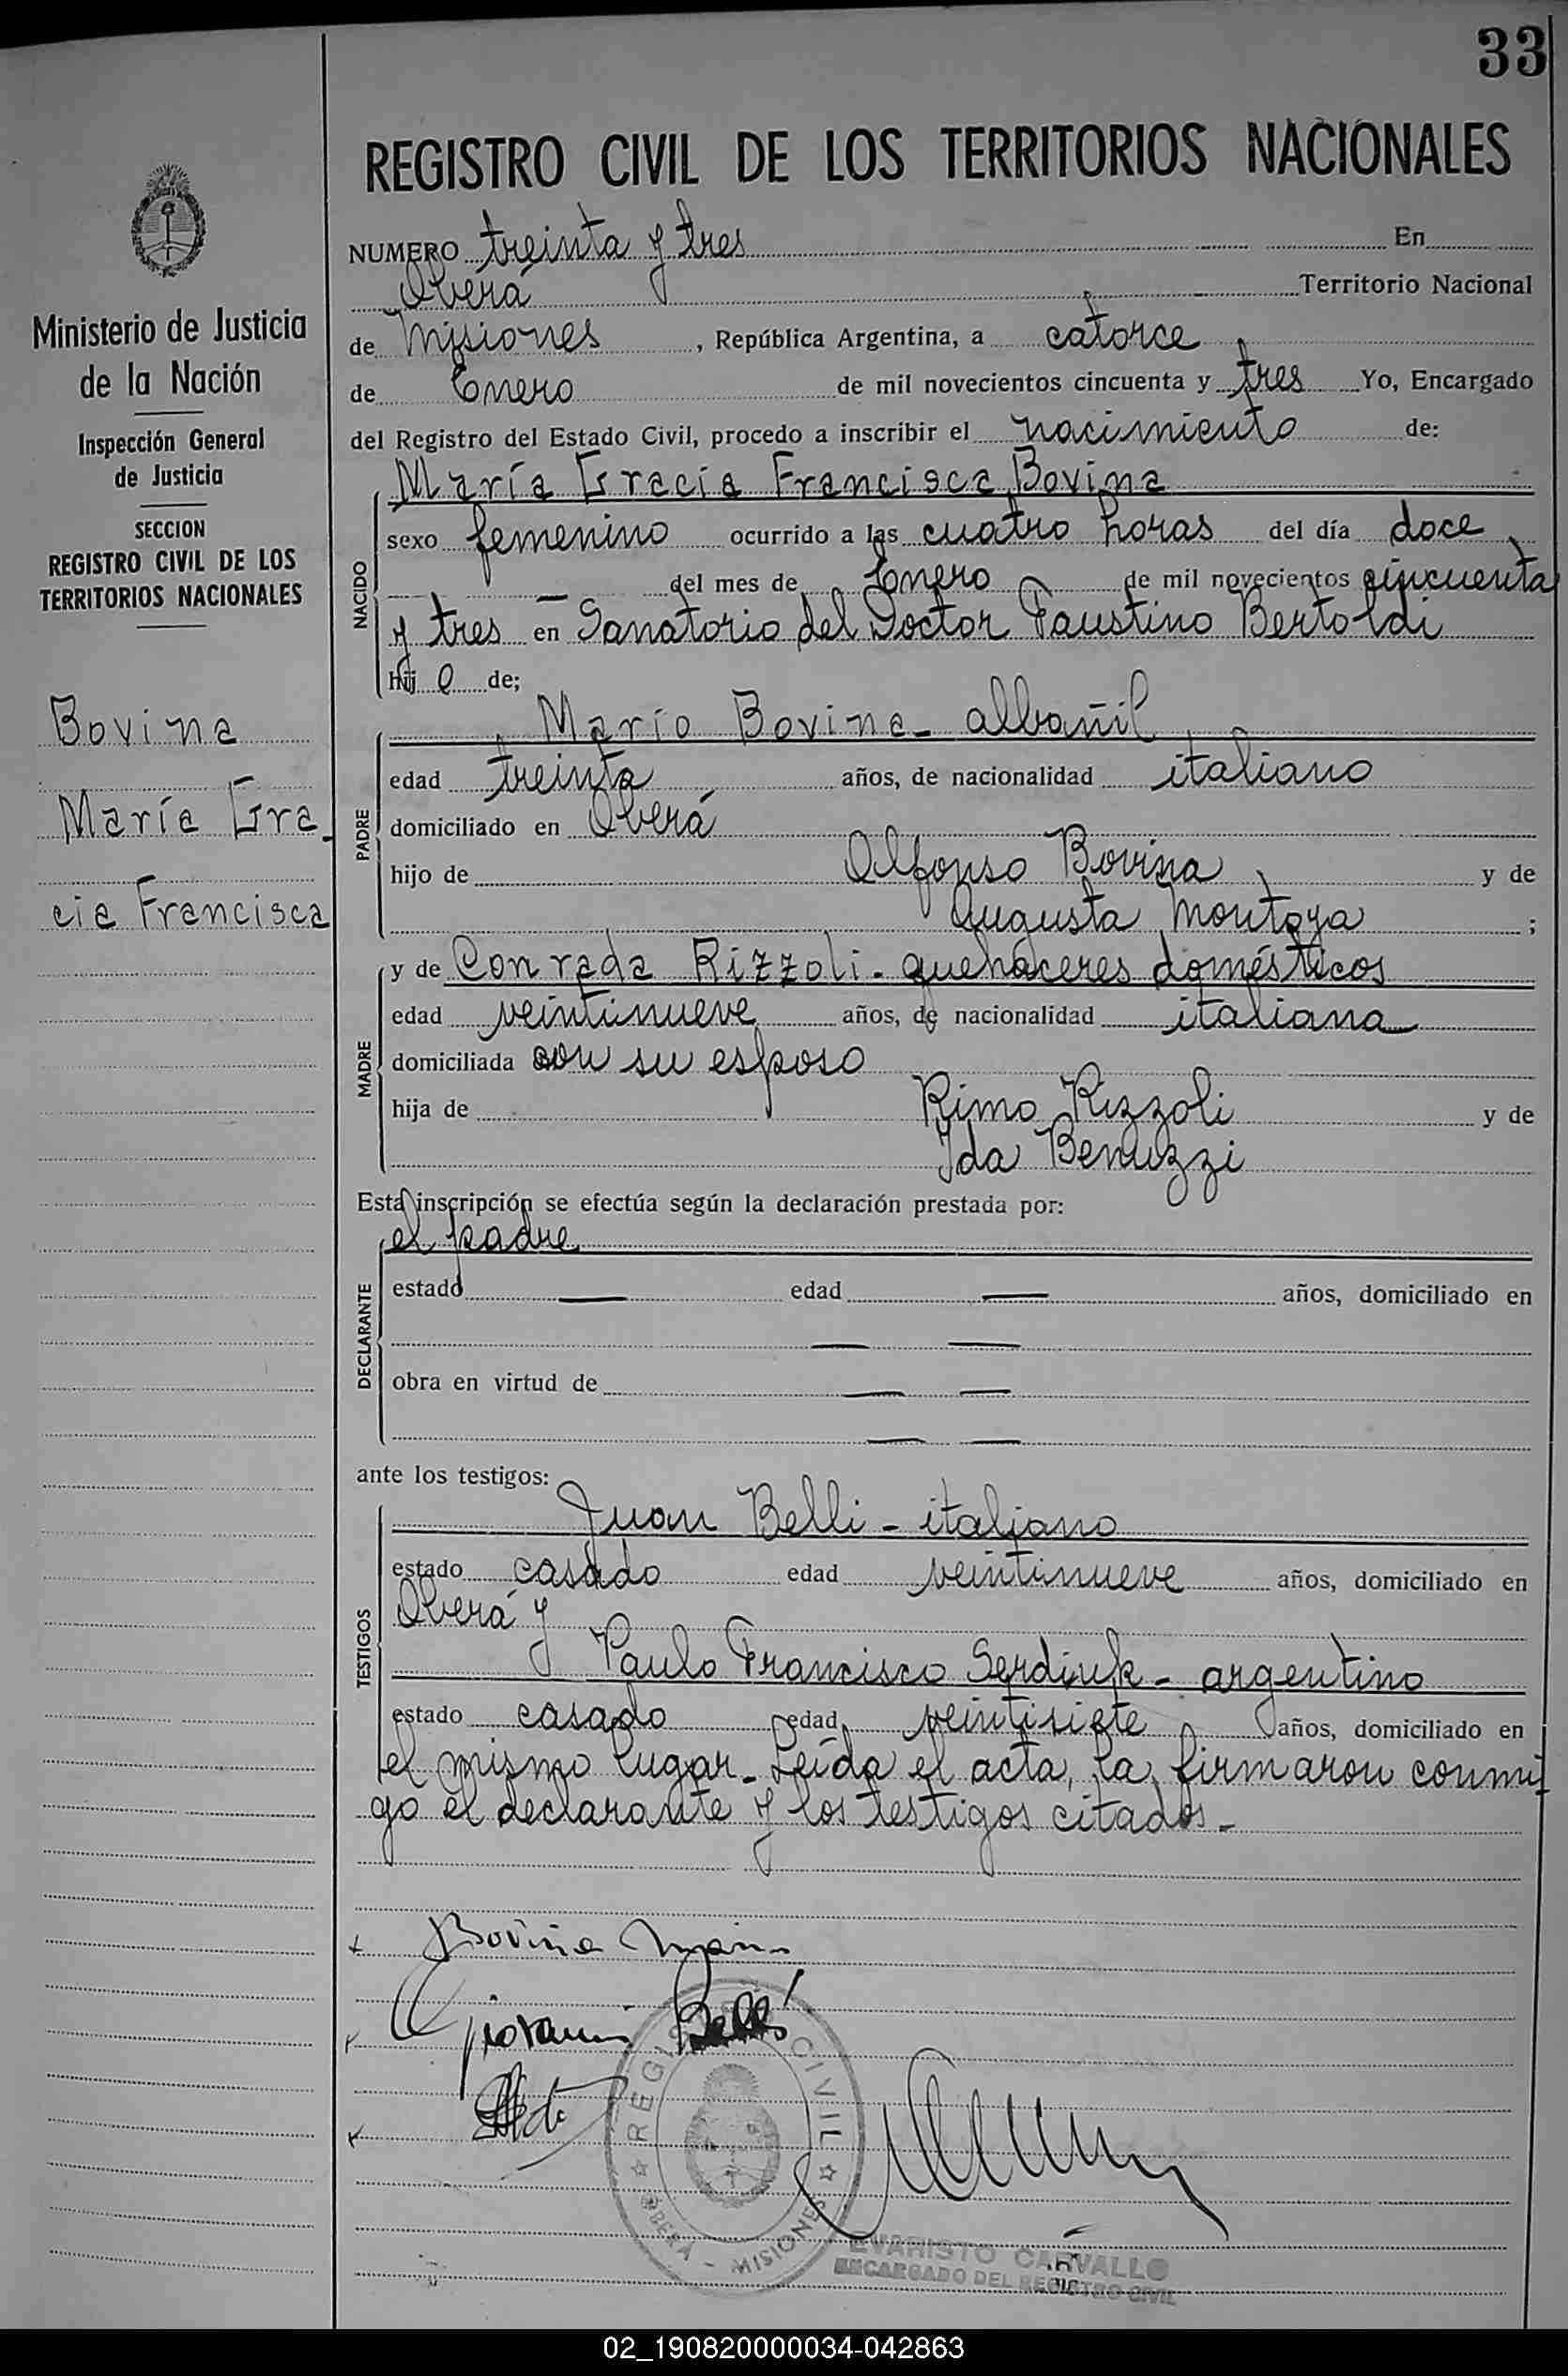 33
REGISTRO CIVIL DE LOS TERRITORIOS NACIONALES
Ministerio de Justicia
de la Nación
Inspección General
de Justicia
SECCION
REGISTRO CIVIL DE LOS
TERRITORIOS NACIONALES
Bovina
María Gra
cia Francisca
NUMERO treinta y tres En
Oberá Territorio Nacional
de Misiones, República Argentina, a catorce
de Enero de mil novecientos cincuenta y tres Yo, Encargado
del Registro del Estado Civil, procedo a inscribir el nacimiento de:
María Gracia Francisca Bovina
NACIDO
sexo femenino ocurrido a las cuatro horas del día doce
— del mes de Enero de mil novecientos cincuenta
y tres en Sanatorio del Doctor Faustino Bertoldi
hij a de;
Mario Bovina - albañil
PADRE
edad treinta años, de nacionalidad italiano
domiciliado en Oberá
hijo de Alfonso Bovina y de
Augusta Montoya ;
y de Conrada Rizzoli - quehaceres domésticos
MADRE
edad veintinueve años, de nacionalidad italiana
domiciliada con su esposo
hija de Rimo Rizzoli y de
Ida Benuzzi
Esta inscripción se efectúa según la declaración prestada por:
el padre
DECLARANTE
estado — edad — años, domiciliado en
— —
obra en virtud de — —
— —
ante los testigos:
Juan Belli - italiano
TESTIGOS
estado casado edad veintinueve años, domiciliado en
Oberá y
Paulo Francisco Serdiuk - argentino
estado casado edad veintisiete años, domiciliado en
el mismo lugar - Leída el acta, la firmaron conmi
go el declarante y los testigos citados.-
Bovina Mario
Giovanni Belli
REGISTRO CIVIL
OBERA - MISIONES
EVARISTO CARVALLO
ENCARGADO DEL REGISTRO CIVIL
02_190820000034-042863